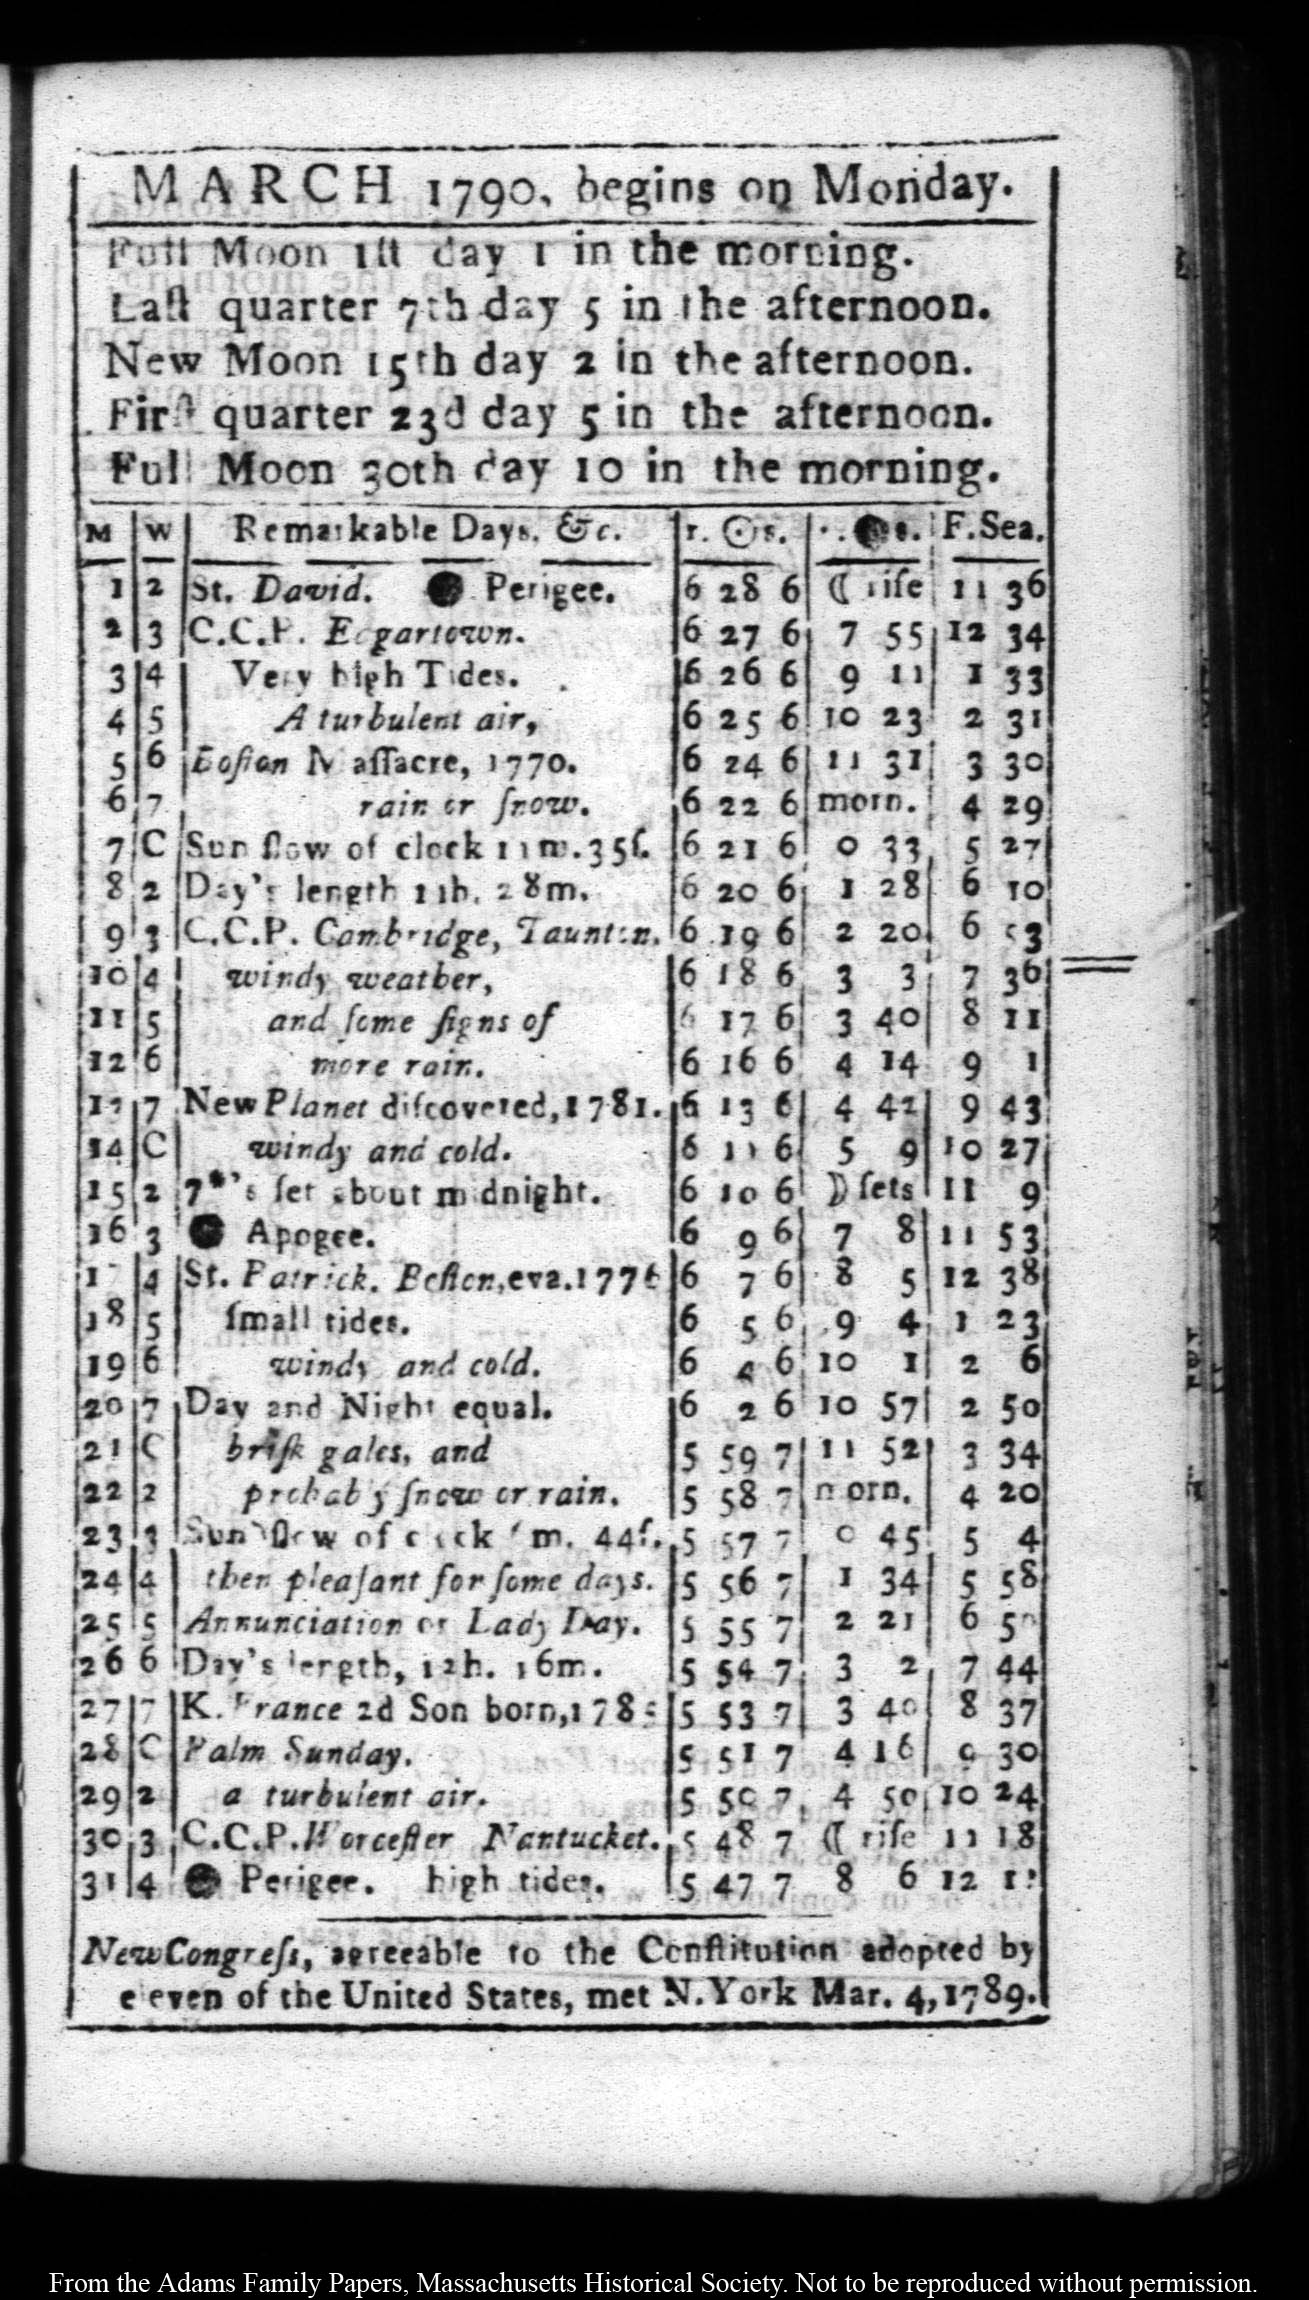 MARCH 1790, begins on Monday.
Full Moon 1ſt day 1 in the morning.
Laſt quarter 7th day 5 in the afternoon.
New Moon 15th day 2 in the afternoon.
Firſt quarter 23d day 5 in the afternoon.
Full Moon 30th day 10 in the morning.
M W Remarkable Days, &c. r. ☉ s. r. ● s. F.Sea.
1 2 St. David. ● Perigee. 6 28 6 ☾ riſe 11 36
2 3 C.C.P. Edgartown. 6 27 6 7 55 12 34
3 4 Very high Tides. 6 26 6 9 11 1 33
4 5 A turbulent air, 6 25 6 10 23 2 31
5 6 Boſton Maſſacre, 1770. 6 24 6 11 31 3 30
6 7 rain or ſnow. 6 22 6 morn. 4 29
7 C Sun ſlow of clock 11m. 35ſ. 6 21 6 0 33 5 27
8 2 Day's length 11h. 28m. 6 20 6 1 28 6 10
9 3 C.C.P. Cambridge, Taunton. 6 19 6 2 20 6 53
10 4 windy weather, 6 18 6 3 3 7 36
11 5 and ſome ſigns of 6 17 6 3 40 8 11
12 6 more rain. 6 16 6 4 14 9 1
13 7 New Planet diſcovered, 1781. 6 13 6 4 42 9 43
14 C windy and cold. 6 11 6 5 9 10 27
15 2 7*'s ſet about midnight. 6 10 6 ☽ ſets 11 9
16 3 ● Apogee. 6 9 6 7 8 11 53
17 4 St. Patrick. Boſton, eva. 1776 6 7 6 8 5 12 38
18 5 ſmall tides. 6 5 6 9 4 1 23
19 6 windy and cold. 6 4 6 10 1 2 6
20 7 Day and Night equal. 6 2 6 10 57 2 50
21 C briſk gales, and 5 59 7 11 52 3 34
22 2 probably ſnow or rain. 5 58 7 morn. 4 20
23 3 Sun ſlow of clock m. 44ſ. 5 57 7 0 45 5 4
24 4 then pleaſant for ſome days. 5 56 7 1 34 5 58
25 5 Annunciation or Lady Day. 5 55 7 2 21 6
26 6 Day's length, 12h. 16m. 5 54 7 3 2 7 44
27 7 K. France 2d Son born, 1785 5 53 7 3 40 8 37
28 C Palm Sunday. 5 51 7 4 16 9 30
29 2 a turbulent air. 5 50 7 4 50 10 24
30 3 C.C.P. Worceſter Nantucket. 5 48 7 ☾ riſe 11 18
31 4 ● Perigee. high tides. 5 47 7 8 6 12
New Congreſs, agreeable to the Conſtitution adopted by
eleven of the United States, met N. York Mar. 4, 1789.
From the Adams Family Papers, Massachusetts Historical Society. Not to be reproduced without permission.